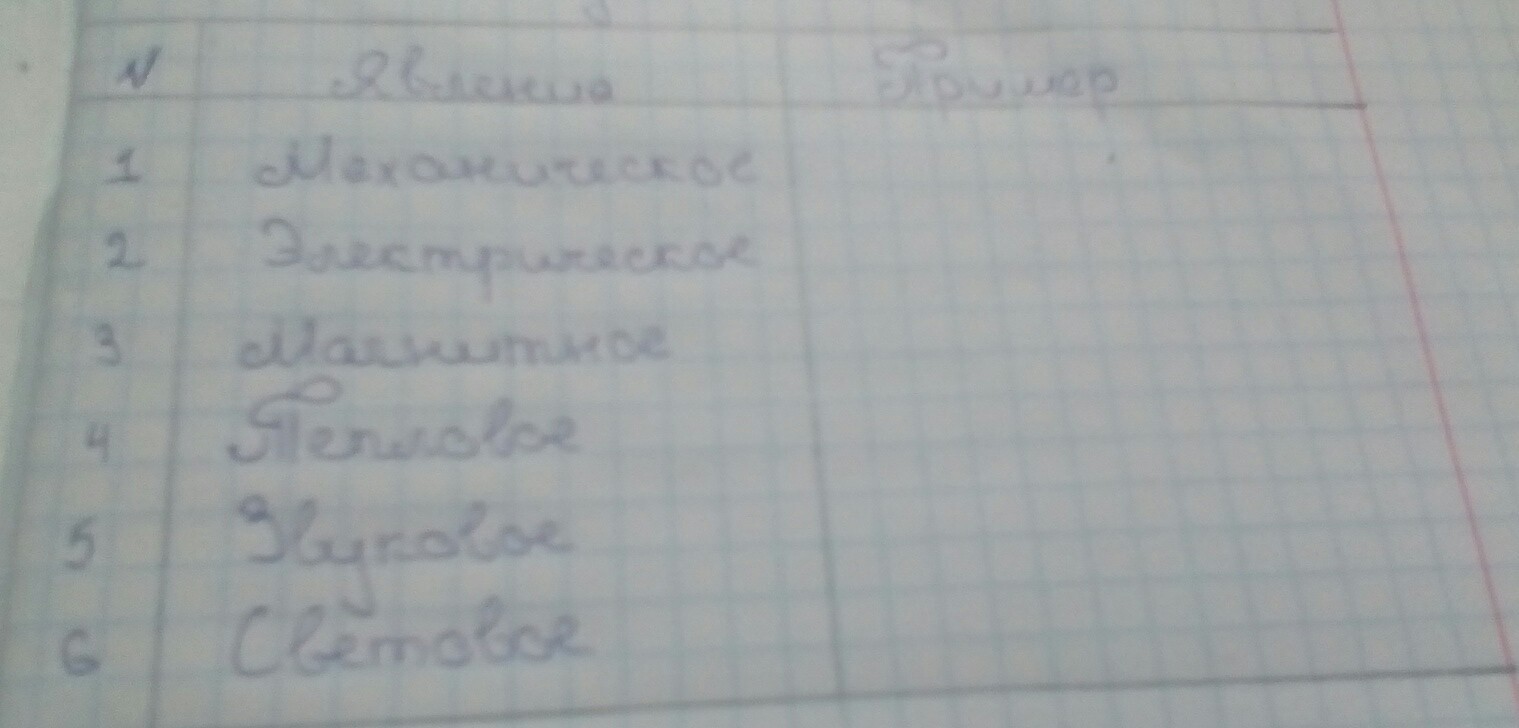 N Явление Пример
1 Механическое
2 Электрическое
3 Магнитное
4 Тепловое
5 Звуковое
6 Световое